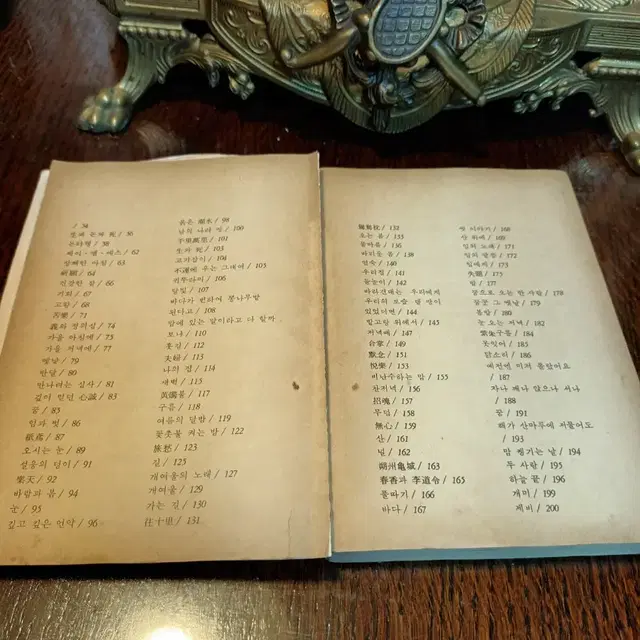 / 34
生과 돈과 死 / 36
돈타령 / 38
제이·엠·에스 / 62
상쾌한 아침 / 63
/ 64
건강한 잠 / 66
기회 / 67
고향 / 68
苦樂 / 71
義와 정의심 / 74
가을 아침에 / 75
가을 저녁에 / 77
옛날 / 79
반달 / 80
만나려는 심사 / 81
깊이 믿던 心誠 / 83
꿈 / 85
임과 벗 / 86
紙鳶 / 87
오시는 눈 / 89
설움의 덩이 / 91
樂天 / 92
바람과 봄 / 94
눈 / 95
깊고 깊은 언약 / 96
붉은 潮水 / 98
남의 나라 땅 / 100
千里萬里 / 101
生과 死 / 103
/ 104
不運에 우는 그대여 / 105
귀뚜라미 / 106
/ 107
바다가 변하여 뽕나무밭
된다고 / 108
맘에 있는 말이라고 다 할까
보냐 / 110
훗길 / 112
夫婦 / 113
나의 집 / 114
새벽 / 115
黃燭불 / 117
구름 / 118
여름의 달밤 / 119
꽃촛불 켜는 밤 / 122
旅愁 / 123
길 / 125
개여울의 노래 / 127
개여울 / 129
가는 길 / 130
往十里 / 131
鴛鴦枕 / 132
오는 봄 / 133
물마름 / 136
바리운 몸 / 138
엄숙 / 140
우리집 / 141
들돋이 / 142
바라건대는 우리에게
우리의 보습 댈 땅이
있었더면 / 144
밭고랑 위에서 / 145
저녁때 / 147
合掌 / 149
默念 / 151
悅樂 / 153
비난수하는 맘 / 155
찬저녁 / 156
招魂 / 157
무덤 / 158
無心 / 159
산 / 161
널 / 162
朔州龜城 / 163
春香과 李道令 / 165
물마기 / 166
바다 / 167
/ 168
산 위에 / 169
임의 노래 / 171
임의 말씀 / 172
임에게 / 173
失題 / 175
밤 / 177
꿈으로 오는 한 사람 / 178
꿈꾼 그 옛날 / 179
봄밤 / 180
눈 오는 저녁 / 182
紫朱구름 / 184
못잊어 / 185
닭소리 / 186
예전엔 미처 몰랐어요
/ 187
자나 깨나 앉으나 서나
/ 188
꿈 / 191
해가 산마루에 저물어도
/ 193
맘 켕기는 날 / 194
두 사람 / 195
하늘 끝 / 196
개미 / 199
제비 / 200